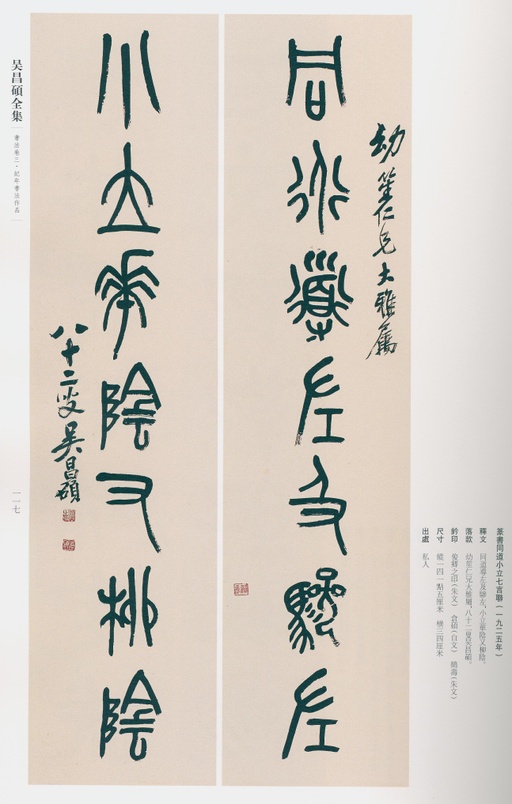 篆書同道小立七言聯(一九二五年)
釋文 同道導左及驂左,小立華陰又柳陰。
落款 幼笙仁兄大雅屬,八十二叟吳昌碩。
鈐印 俊卿之印(朱文) 倉碩(白文) (朱文)
尺寸 縱一四一點五厘米 橫三四厘米
出處 私人
幼笙仁兄大雅屬
同道導左及驂左
小立華陰又柳陰
八十二叟吳昌碩
吴昌碩全集
書法卷三·紀年書法作品
一一七